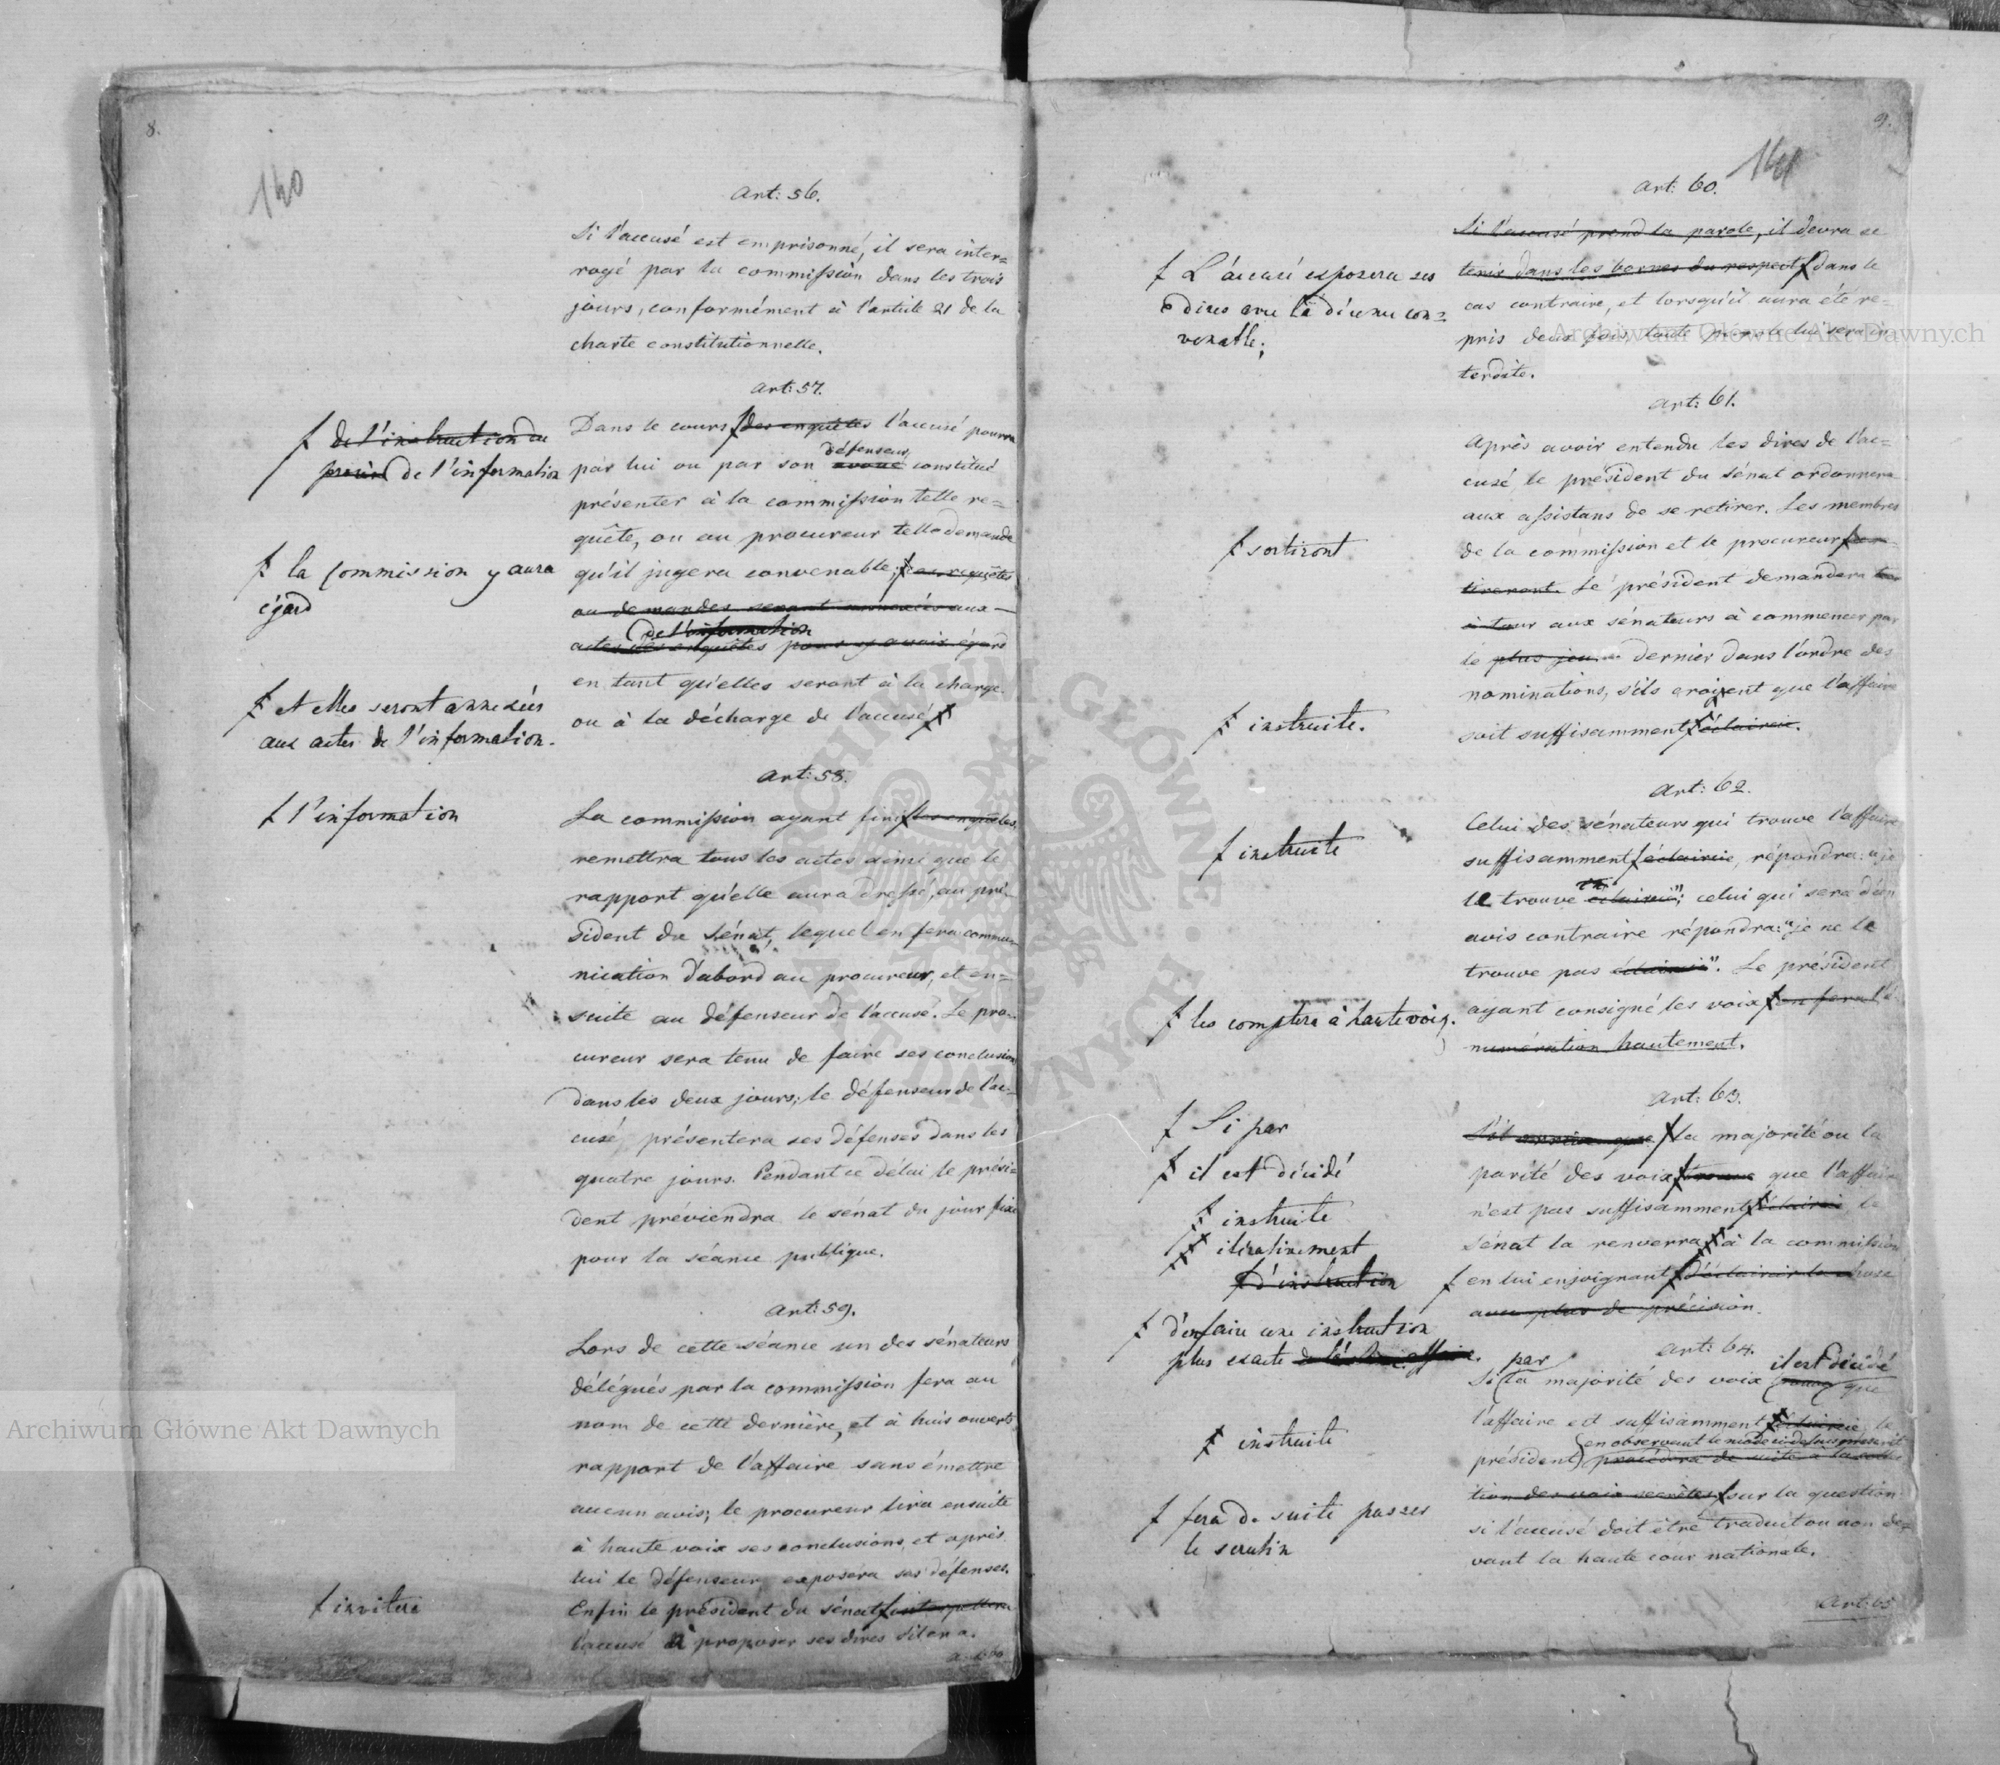 8.
140
Art: 56.
Si l'accusé est emprisonné, il sera inter=
rogé par la commission dans les trois
jours, conformément à l'article 21 de la
charte constitutionnelle.
Art: 57.
Dans le cours des enquêtes l'accusé pourra
de l'instruction du
procès de l'information
défenseur
par lui ou par son avoué constitué
présenter à la commission telle re=
quête, ou au procureur telle demande
la Commission y aura
égard
qu'il jugera convenable; ces requêtes
ou demandes seront annexées aux
de l'information
actes des enquêtes pour y avoir égard
en tant qu'elles seront à la charge
et elles seront annexées
aux actes de l'information.
ou à la décharge de l'accusé
Art: 58.
l'information
La commission ayant fini les enquêtes,
remettra tous les actes ainsi que le
rapport qu'elle aura dressé, au pré-
sident du Sénat, lequel en fera commu-
nication d'abord au procureur, et en=
suite au défenseur de l'accusé. Le pro-
cureur sera tenu de faire ses conclusions
dans les deux jours; le défenseur de l'ac-
cusé, présentera ses défenses dans les
quatre jours. Pendant ce délai le prési=
dent préviendra le sénat du jour fixé
pour la séance publique.
Art: 59.
Lors de cette séance un des sénateurs
délégués par la commission fera au
nom de cette dernière, et à huis ouverts
rapport de l'affaire sans émettre
aucun avis; le procureur lira ensuite
à haute voix ses conclusions, et après
lui le défenseur exposera ses défenses.
invitera
Enfin le président du sénat interpellera
l'accusé à proposer ses dires s'il en a.
Art: 60
9.
141
Art: 60.
Si l'accusé prend la parole, il devra se
tenir dans les bornes du respect, dans le
L'accusé exposera ses
dires avec la décence con=
venable;
cas contraire, et lorsqu'il aura été re=
pris deux fois, toute parole lui sera in
terdite.
Art: 61.
Après avoir entendu les dires de l'ac=
cusé, le président du Sénat ordonnera
aux assistans de se retirer. Les membres
sortiront
de la commission et le procureur se re-
tireront. Le président demandera tour
à tour aux sénateurs à commencer par
le plus jeune dernier dans l'ordre des
nominations, s'ils croyent que l'affaire
instruite.
soit suffisamment éclaircie.
Art: 62.
Celui des sénateurs qui trouve l'affaire
instruite
suffisamment éclaircie, répondra: "je
la trouve éclaircie"; celui qui sera d'un
avis contraire répondra: "je ne la
trouve pas éclaircie". Le président
les comptera à haute voix.
ayant consigné les voix en fera l'é-
numération hautement.
Art: 63.
Si par
S'il arrive que la majorité ou la
il est décidé
parité des voix trouve que l'affaire
instruite
n'est pas suffisamment éclaircie le
itérativement
sénat la renverra à la commission
d'instruction
en lui enjoignant d'éclaircir la chose
avec plus de précision.
d'en faire une instruction
plus exacte
Art: 64.
par il est décidé
Si la majorité des voix trouve que
instruite
l'affaire est suffisamment éclaircie, le
en observant le mode ci-dessus prescrit
président procédera de suite à la collec
tion des voix secrètes sur la question
fera de suite passer
le scrutin
si l'accusé doit être traduit ou non de=
vant la haute cour nationale.
Art: 65
Archiwum Główne Akt Dawnych
Archiwum Główne Akt Dawnych
ARCHIWUM GŁÓWNE AKT DAWNYCH